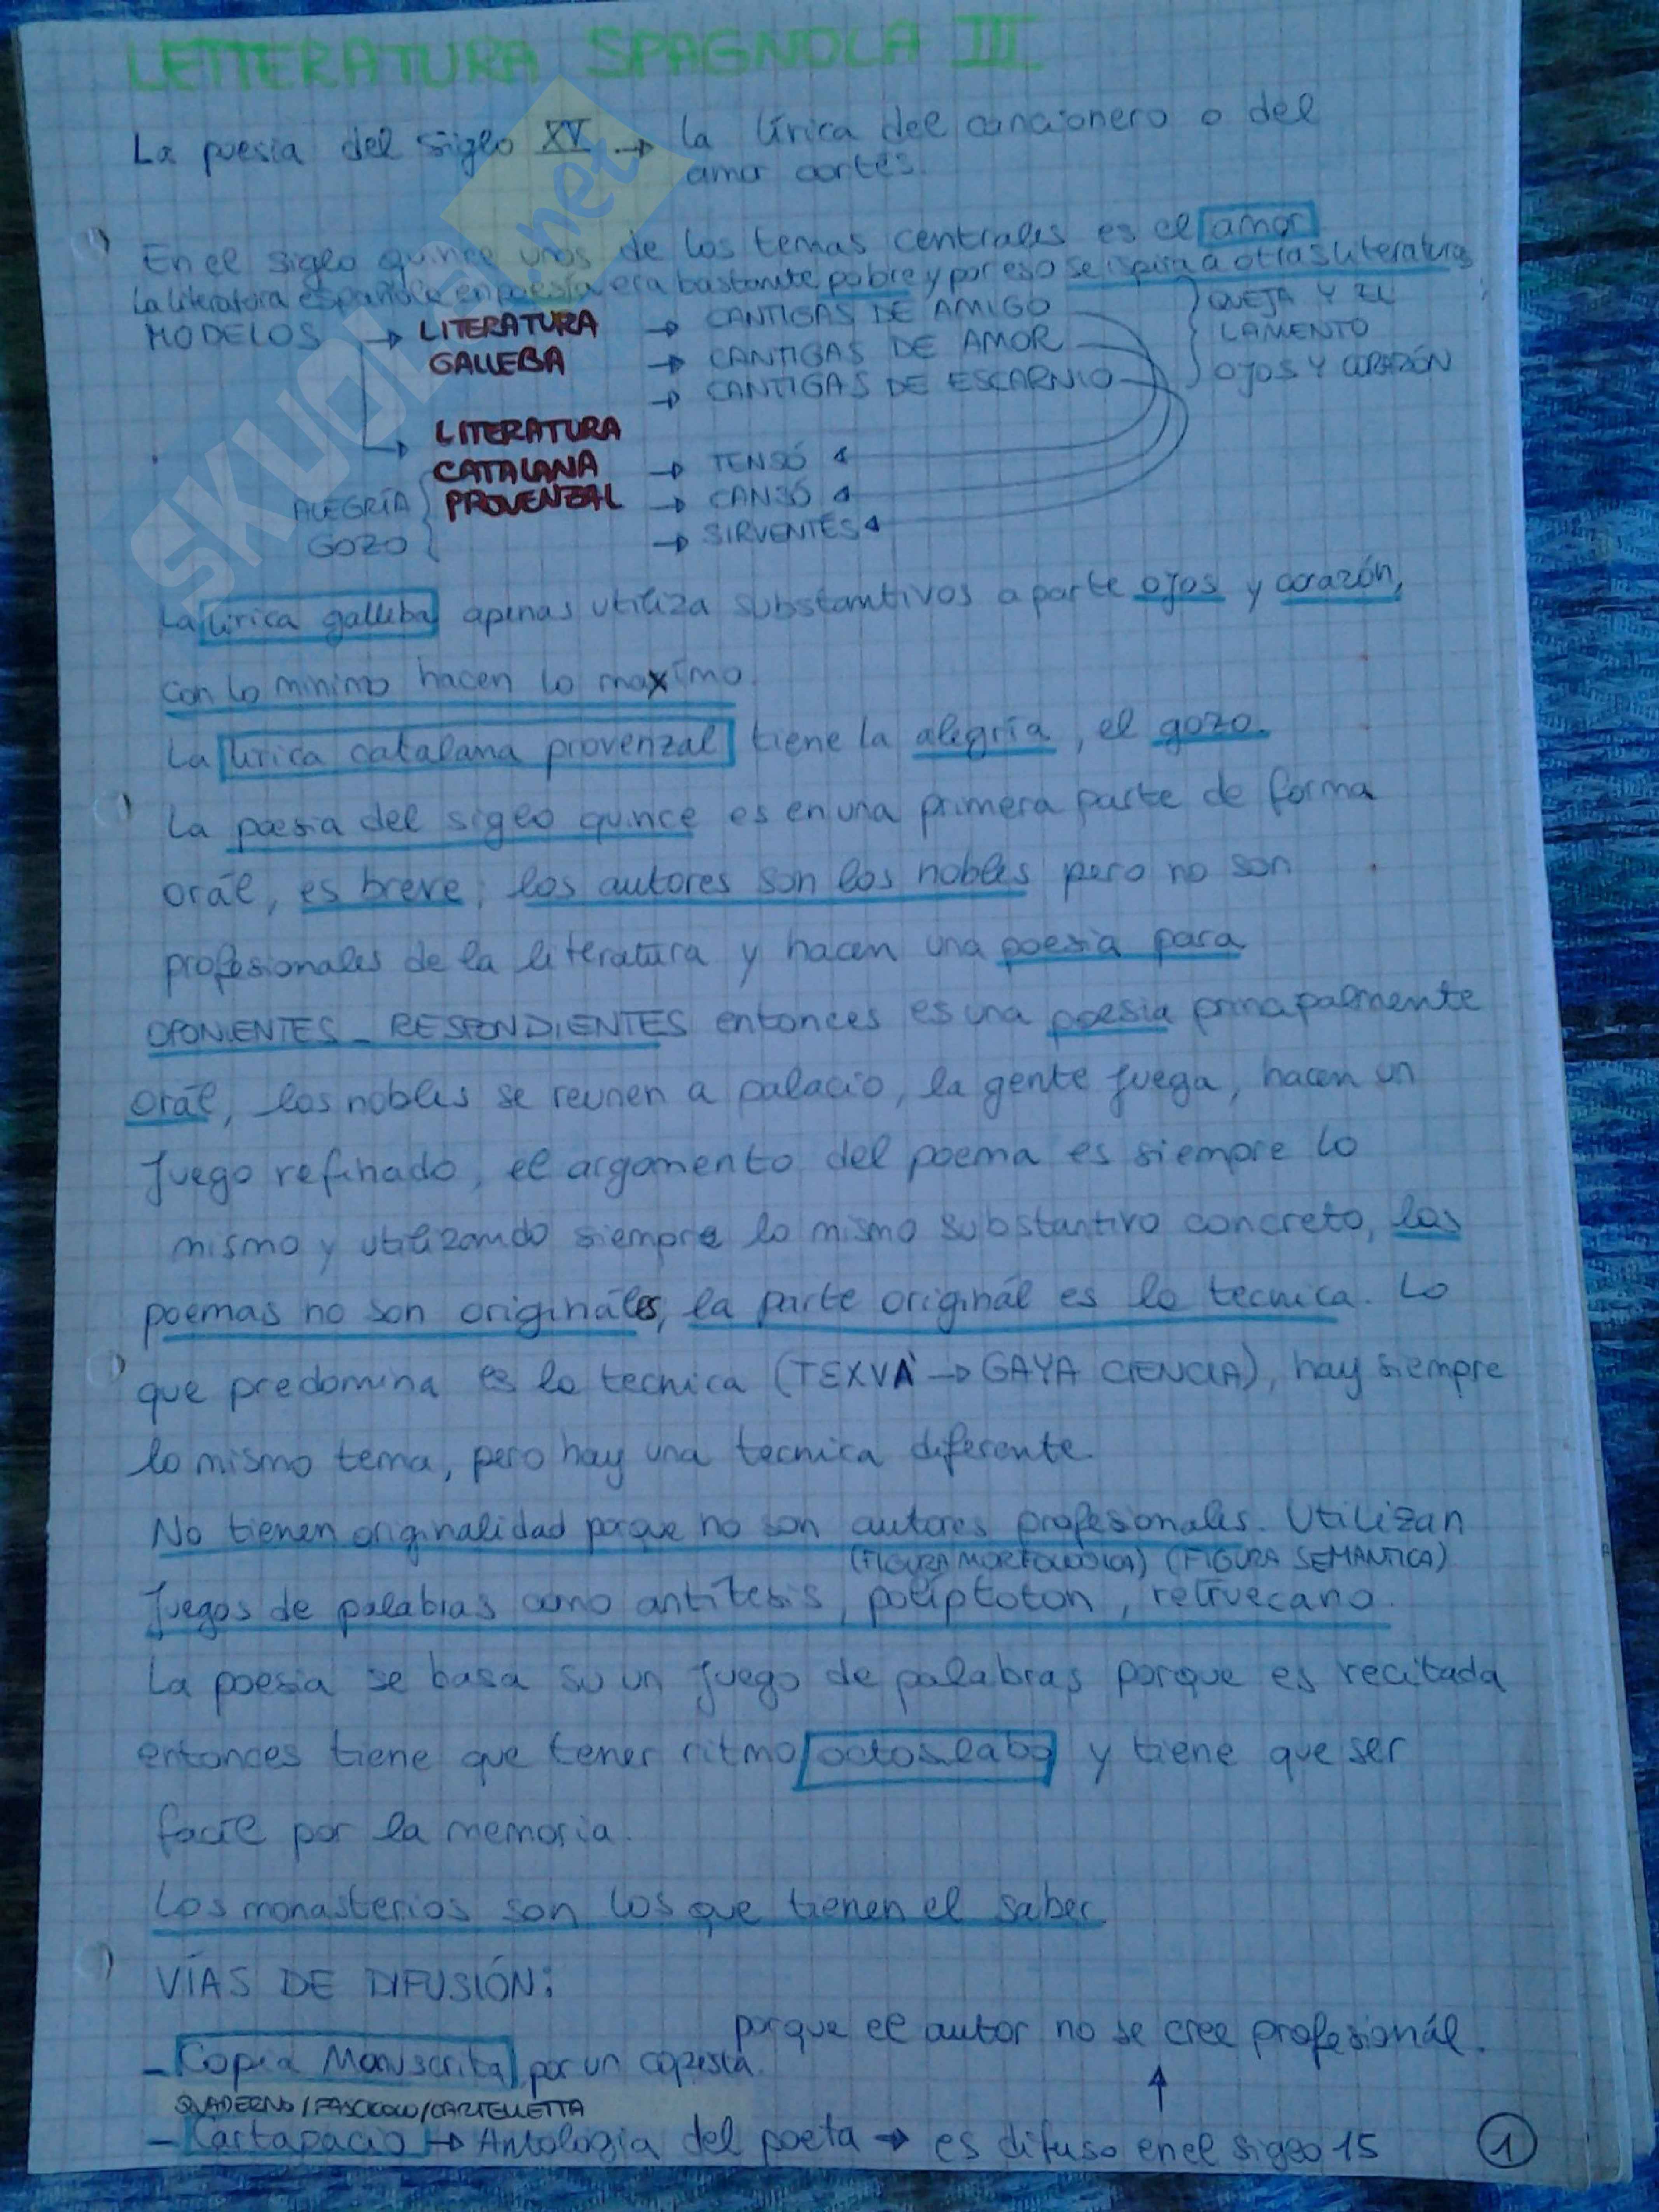 LETTERATURA SPAGNOLA III
La poesia del siglo XV → la lírica del cancionero o del
amor cortés.
En el siglo quince unos de los temas centrales es el amor
La literatura española en poesía era bastante pobre y por eso se ispira a otras literaturas
MODELOS → LITERATURA GALLEGA → CANTIGAS DE AMIGO
→ CANTIGAS DE AMOR
→ CANTIGAS DE ESCARNIO
QUEJA Y EL
LAMENTO
OJOS Y CORAZÓN
→ LITERATURA
CATALANA → TENSÓ
PROVENZAL → CANSÓ
→ SIRVENTÉS
ALEGRÍA
GOZO
La lírica gallega apenas utiliza substantivos a parte ojos y corazón,
con lo minimo hacen lo maxímo.
La lirica catalana provenzal tiene la alegría, el gozo.
La poesia del siglo quince es en una primera parte de forma
orál, es breve, los autores son los nobles pero no son
profesionales de la literatura y hacen una poesia para
OPONIENTES - RESPONDIENTES entonces es una poesia principalmente
orál, los nobles se reunen a palacio, la gente juega, hacen un
juego refinado, el argomento del poema es siempre lo
mismo y utilizando siempre lo mismo substantivo concreto, los
poemas no son origináles, la parte originál es la tecnica. Lo
que predomina es la tecnica (TEXVÀ → GAYA CIENCIA), hay siempre
lo mismo tema, pero hay una tecnica diferente.
No tienen originalidad porque no son autores profesionales. Utilizan
(FIGURA MORFOLOGICA) (FIGURA SEMANTICA)
juegos de palabras como antítesis, políptoton, retruecano.
La poesia se basa su un juego de palabras porque es recitada
entonces tiene que tener ritmo octosilabo y tiene que ser
facíl por la memoria.
Los monasterios son los que tienen el saber
VÍAS DE DIFUSIÓN:
porque el autor no se cree profesionál.
- Copia Manuscrita por un copista.
QUADERNO / FASCICOLO / CARTELLETTA
- Cartapacio → Antologia del poeta → es difuso en el siglo 15
1
SKUOLA.net